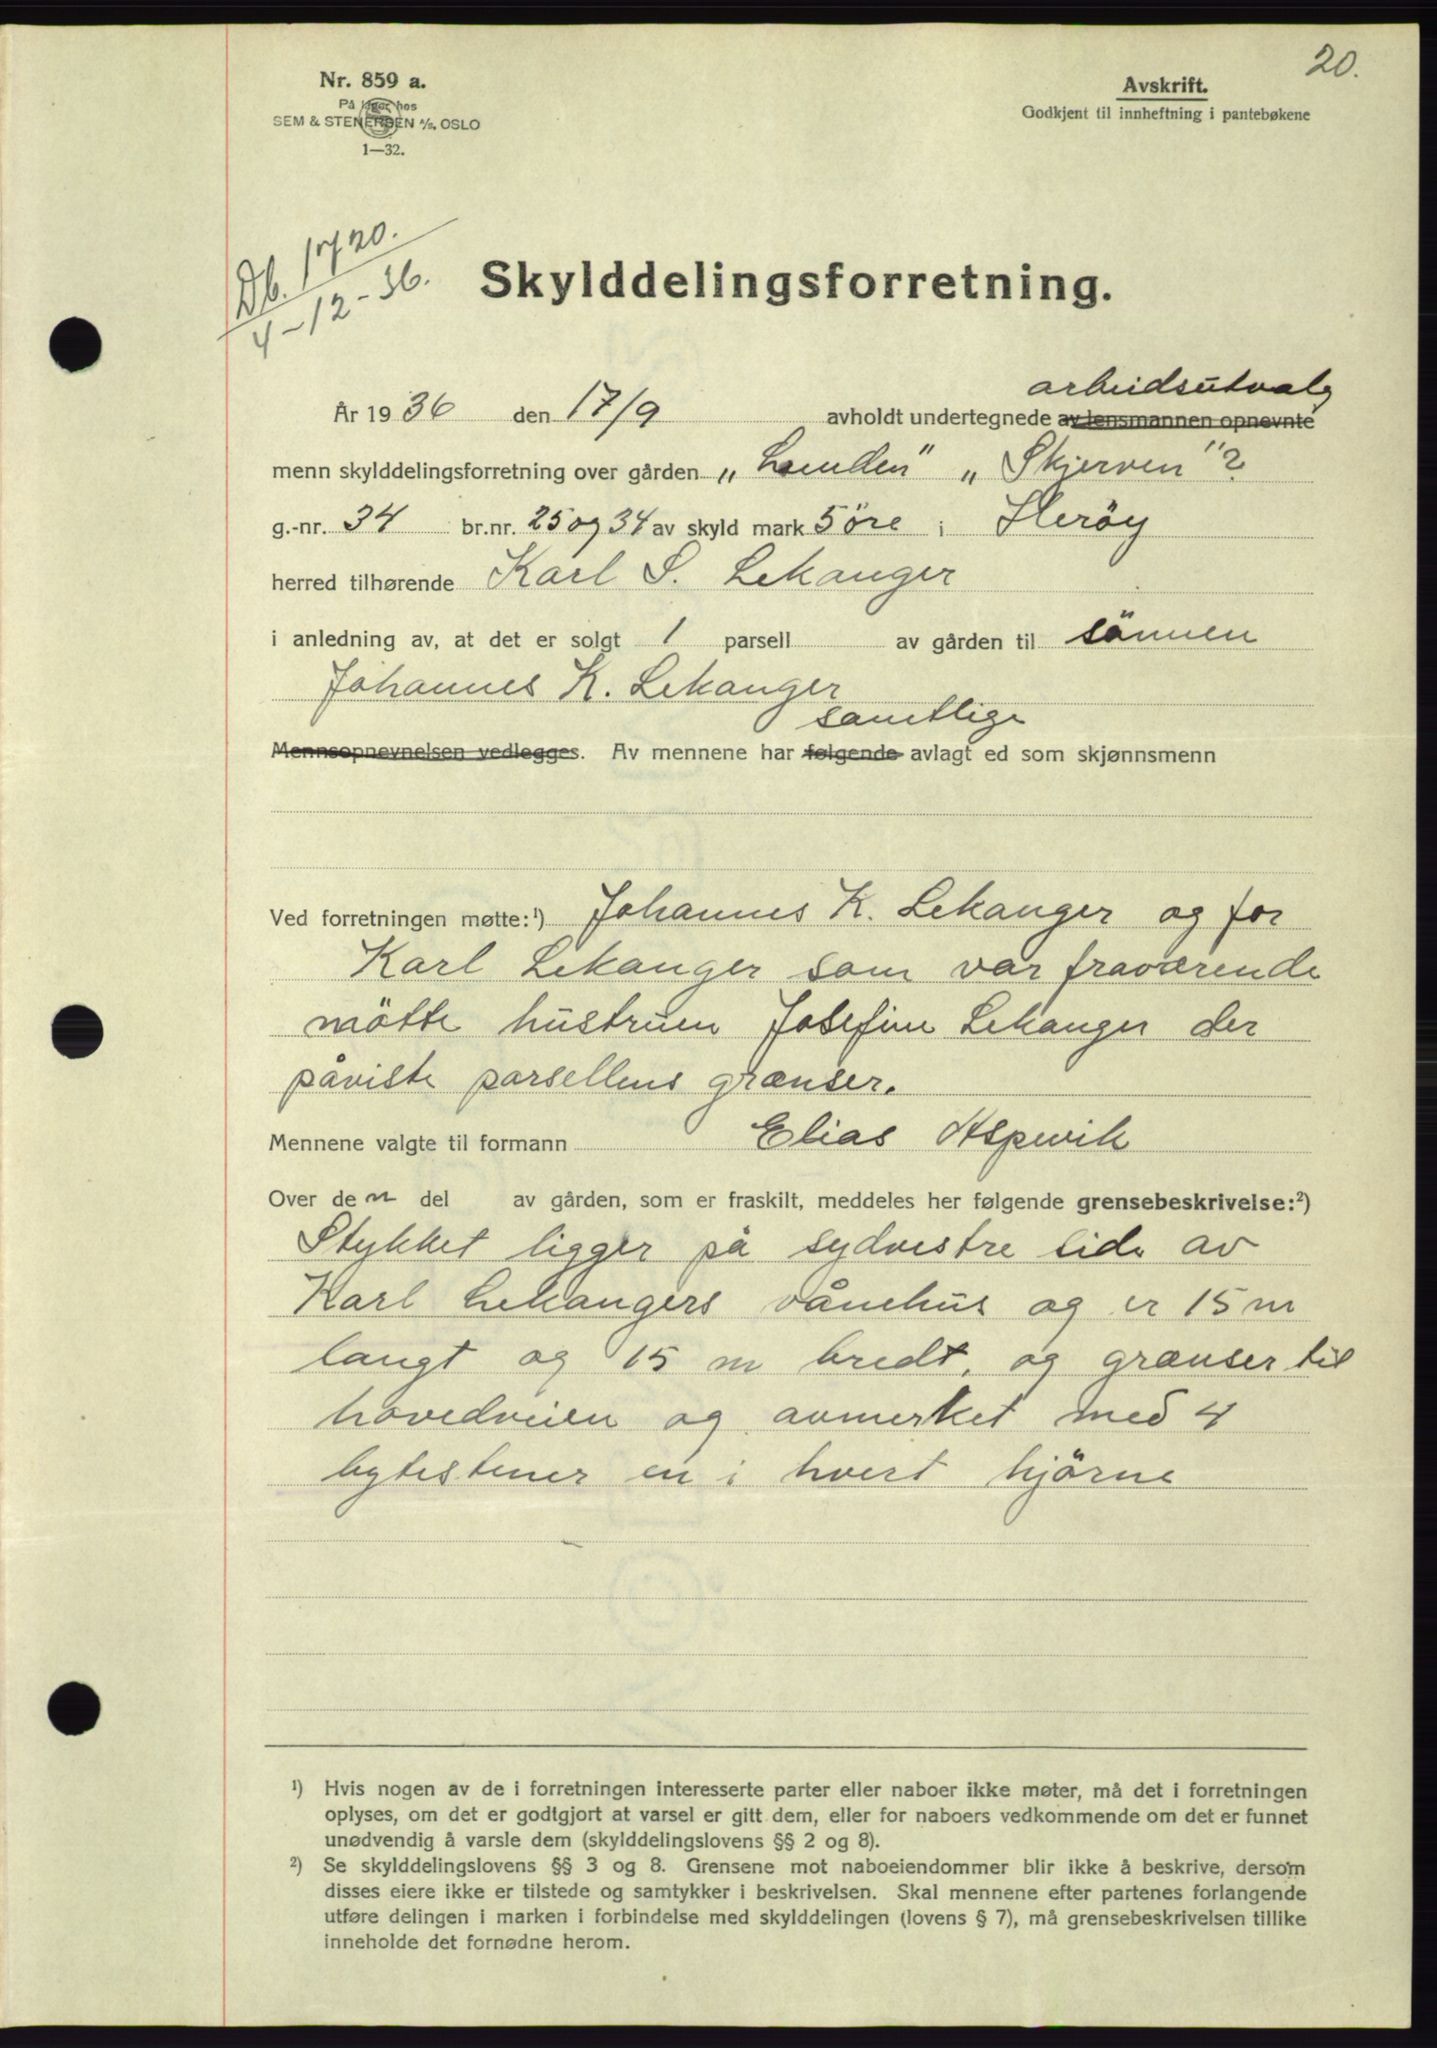 20.
Nr. 859 a.
På lager hos
SEM & STENERSEN A/S, OSLO
1—32.
Avskrift.
Godkjent til innheftning i pantebøkene
Db. 1720.
4-12-36.
Skylddelingsforretning.
arbeidsutvalg
År 1936 den 17/9 avholdt undertegnede av lensmannen opnevnte
menn skylddelingsforretning over gården „Lunden" „Skjerven"2
g.-nr. 34 br.nr. 25 og 34 av skyld mark 5 öre i Heröy
herred tilhørende Karl S. Lekanger
i anledning av, at det er solgt 1 parsell av gården til sönnen
Johannes K. Lekanger
samtlige
Mennsopnevnelsen vedlegges. Av mennene har følgende avlagt ed som skjønnsmenn
Ved forretningen møtte:¹) Johannes K. Lekanger og for
Karl Lekanger som var fraværende
mötte hustruen Josefine Lekanger der
påviste parsellens grænser.
Mennene valgte til formann Elias Aspevik
Over den del av gården, som er fraskilt, meddeles her følgende grensebeskrivelse:²)
Stykket ligger på sydvestre side av
Karl Lekangers vånehus og er 15 m
langt og 15 m bredt, og grænser til
hovedveien og avmerket med 4
bytestener en i hvert hjörne
¹) Hvis nogen av de i forretningen interesserte parter eller naboer ikke møter, må det i forretningen
oplyses, om det er godtgjort at varsel er gitt dem, eller for naboers vedkommende om det er funnet
unødvendig å varsle dem (skylddelingslovens §§ 2 og 8).
²) Se skylddelingslovens §§ 3 og 8. Grensene mot naboeiendommer blir ikke å beskrive, dersom
disses eiere ikke er tilstede og samtykker i beskrivelsen. Skal mennene efter partenes forlangende
utføre delingen i marken i forbindelse med skylddelingen (lovens § 7), må grensebeskrivelsen tillike
inneholde det fornødne herom.